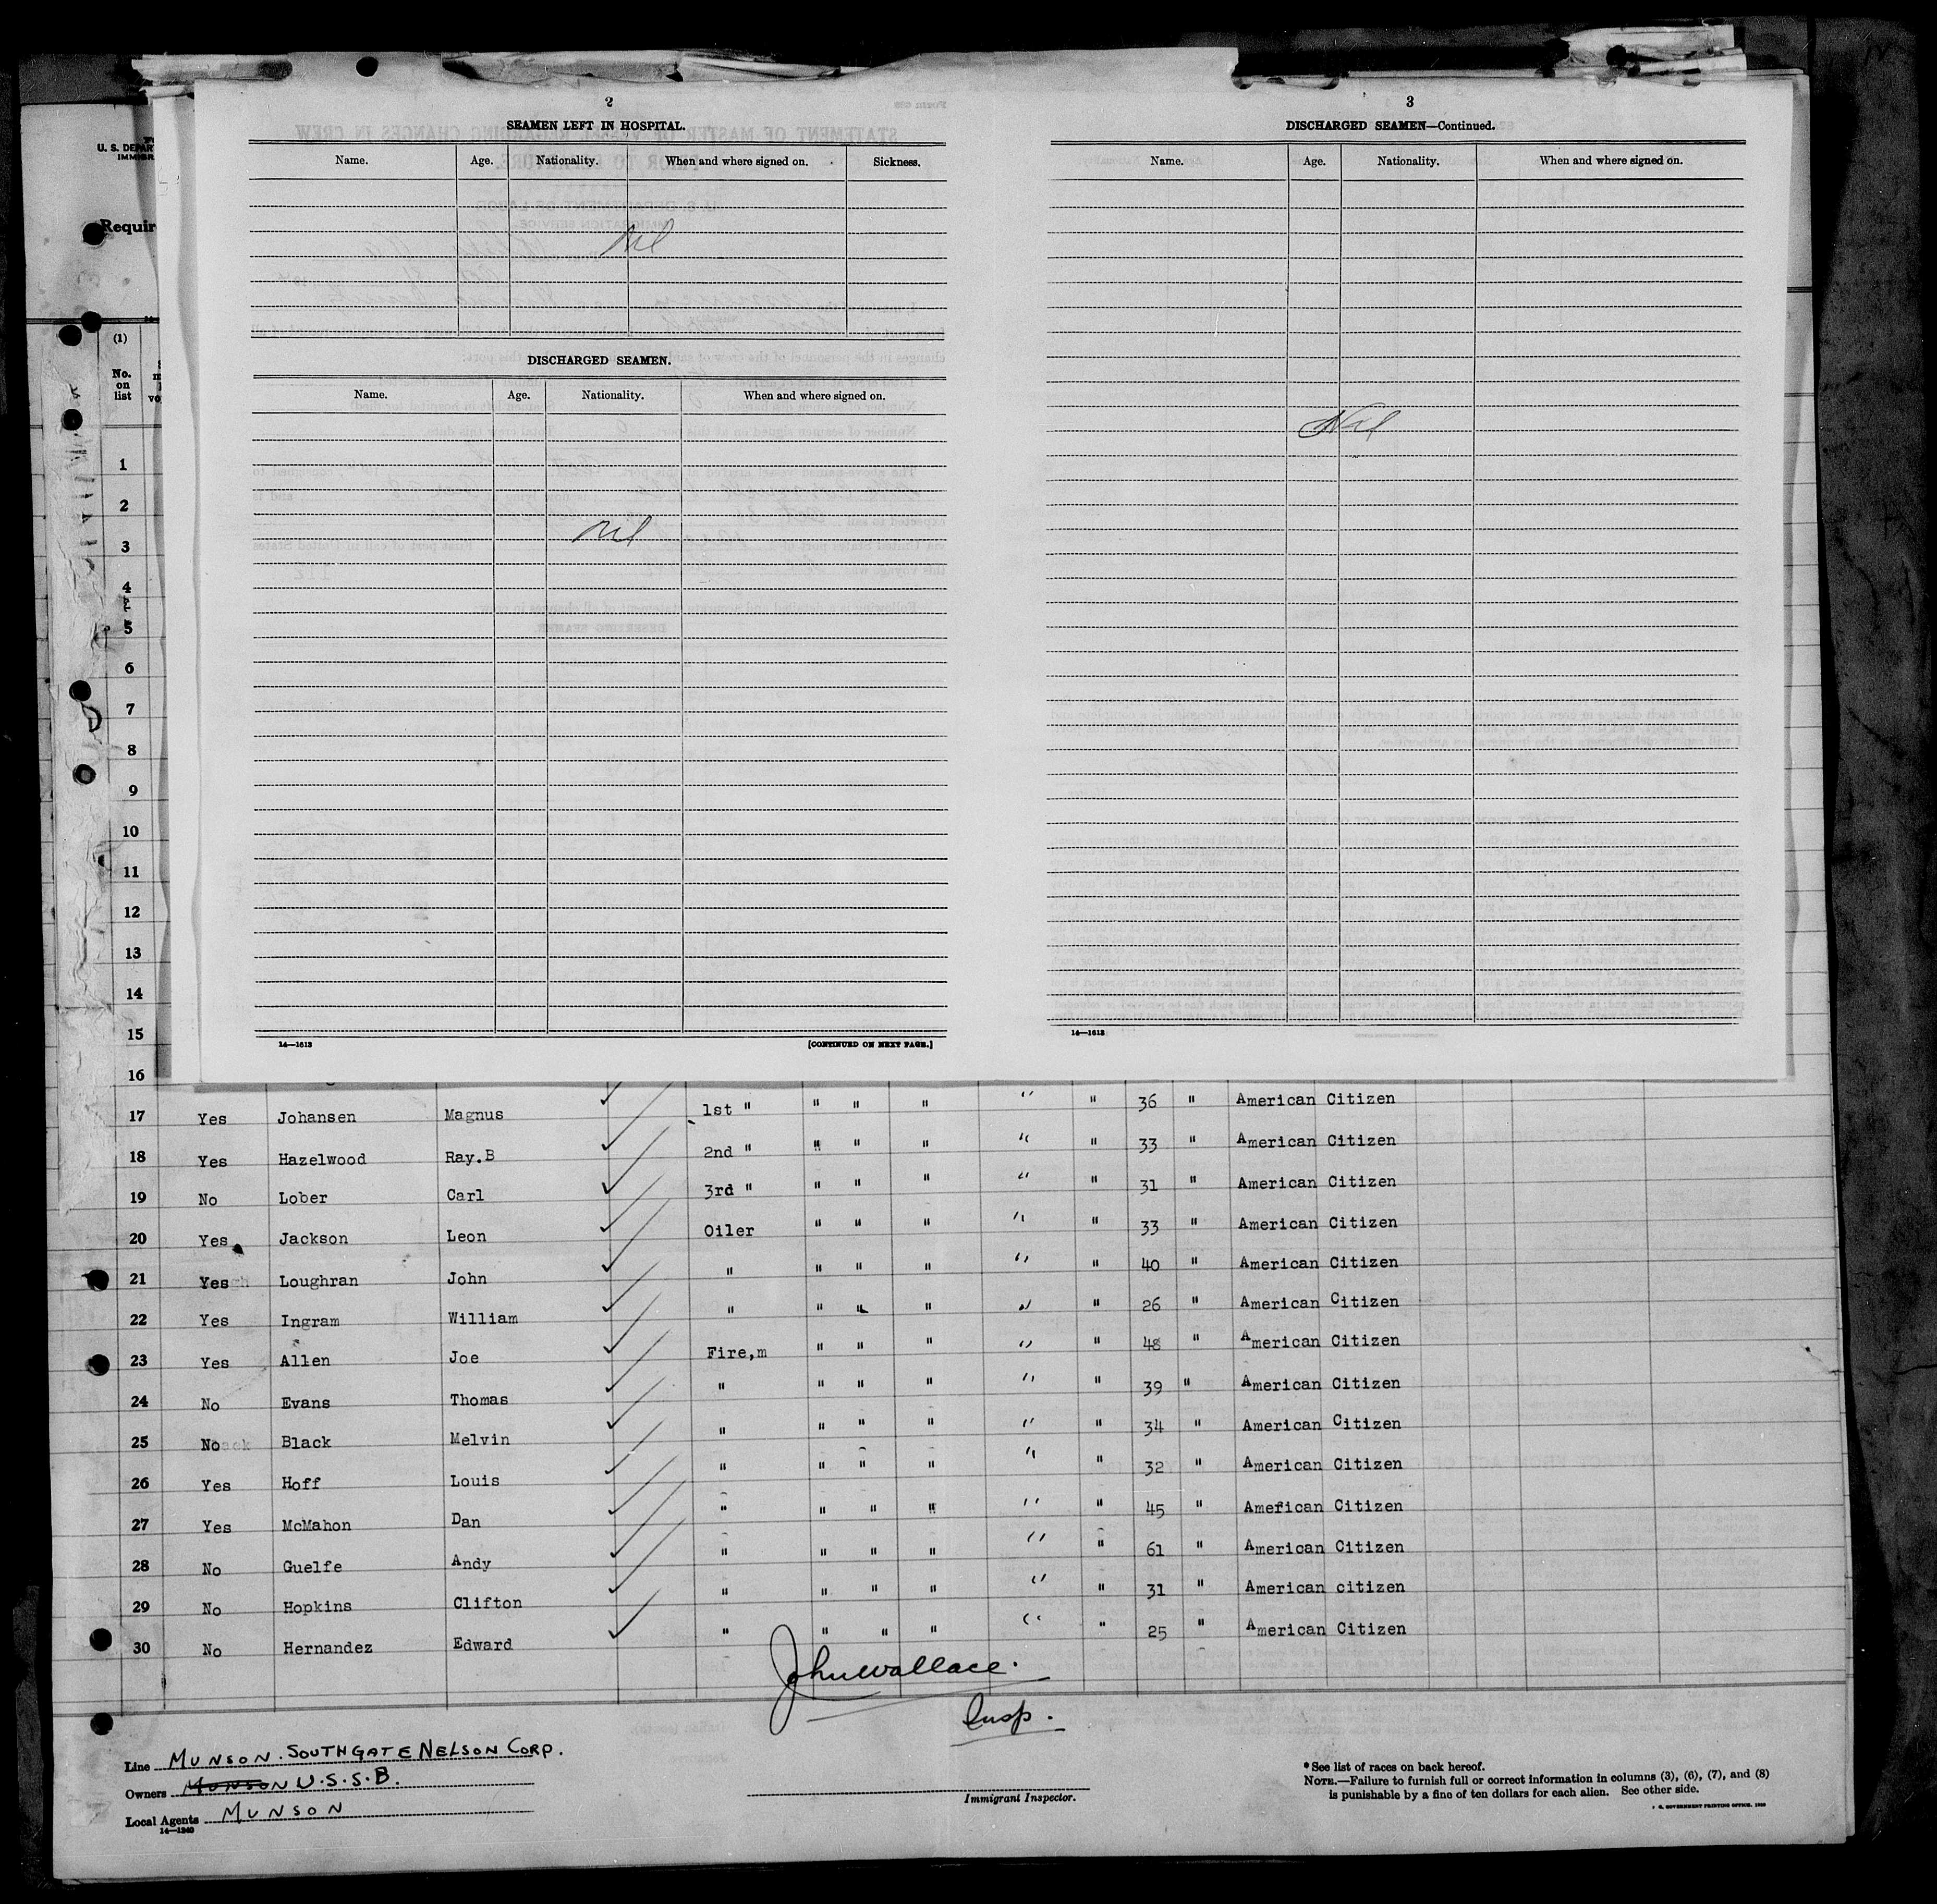 2
SEAMEN LEFT IN HOSPITAL.
Name. Age. Nationality. When and where signed on. Sickness.
Nil
DISCHARGED SEAMEN.
Name. Age. Nationality. When and where signed on.
Nil
14—1613 [CONTINUED ON NEXT PAGE.]
3
DISCHARGED SEAMEN—Continued.
Name. Age. Nationality. When and where signed on.
Nil
14—1613
U. S. DEPAR
IMMIGR
Requir
(1)
No.
on
list
1
2
3
4
5
6
7
8
9
10
11
12
13
14
15
16
17 Yes Johansen Magnus 1st " " " " " " 36 " American Citizen
18 Yes Hazelwood Ray.B 2nd " " " " " " 33 " American Citizen
19 No Lober Carl 3rd " " " " " " 31 " American Citizen
20 Yes Jackson Leon Oiler " " " " " 33 " American Citizen
21 Yes Loughran John " " " " " " 40 " American Citizen
22 Yes Ingram William " " " " " " 26 " American Citizen
23 Yes Allen Joe Fire,m " " " " " 48 " American Citizen
24 No Evans Thomas " " " " " " 39 " American Citizen
25 No Black Melvin " " " " " " 34 " American Citizen
26 Yes Hoff Louis " " " " " " 32 " American Citizen
27 Yes McMahon Dan " " " " " " 45 " Amefican Citizen
28 No Guelfe Andy " " " " " " 61 " American Citizen
29 No Hopkins Clifton " " " " " " 31 " American citizen
30 No Hernandez Edward " " " " " " 25 " American Citizen
John Wallace.
Insp.
Line MUNSON. SOUTHGATE NELSON CORP.
Owners U.S.S.B.
Local Agents MUNSON
14—1240
Immigrant Inspector.
* See list of races on back hereof.
NOTE.—Failure to furnish full or correct information in columns (3), (6), (7), and (8)
is punishable by a fine of ten dollars for each alien. See other side.
GOVERNMENT PRINTING OFFICE